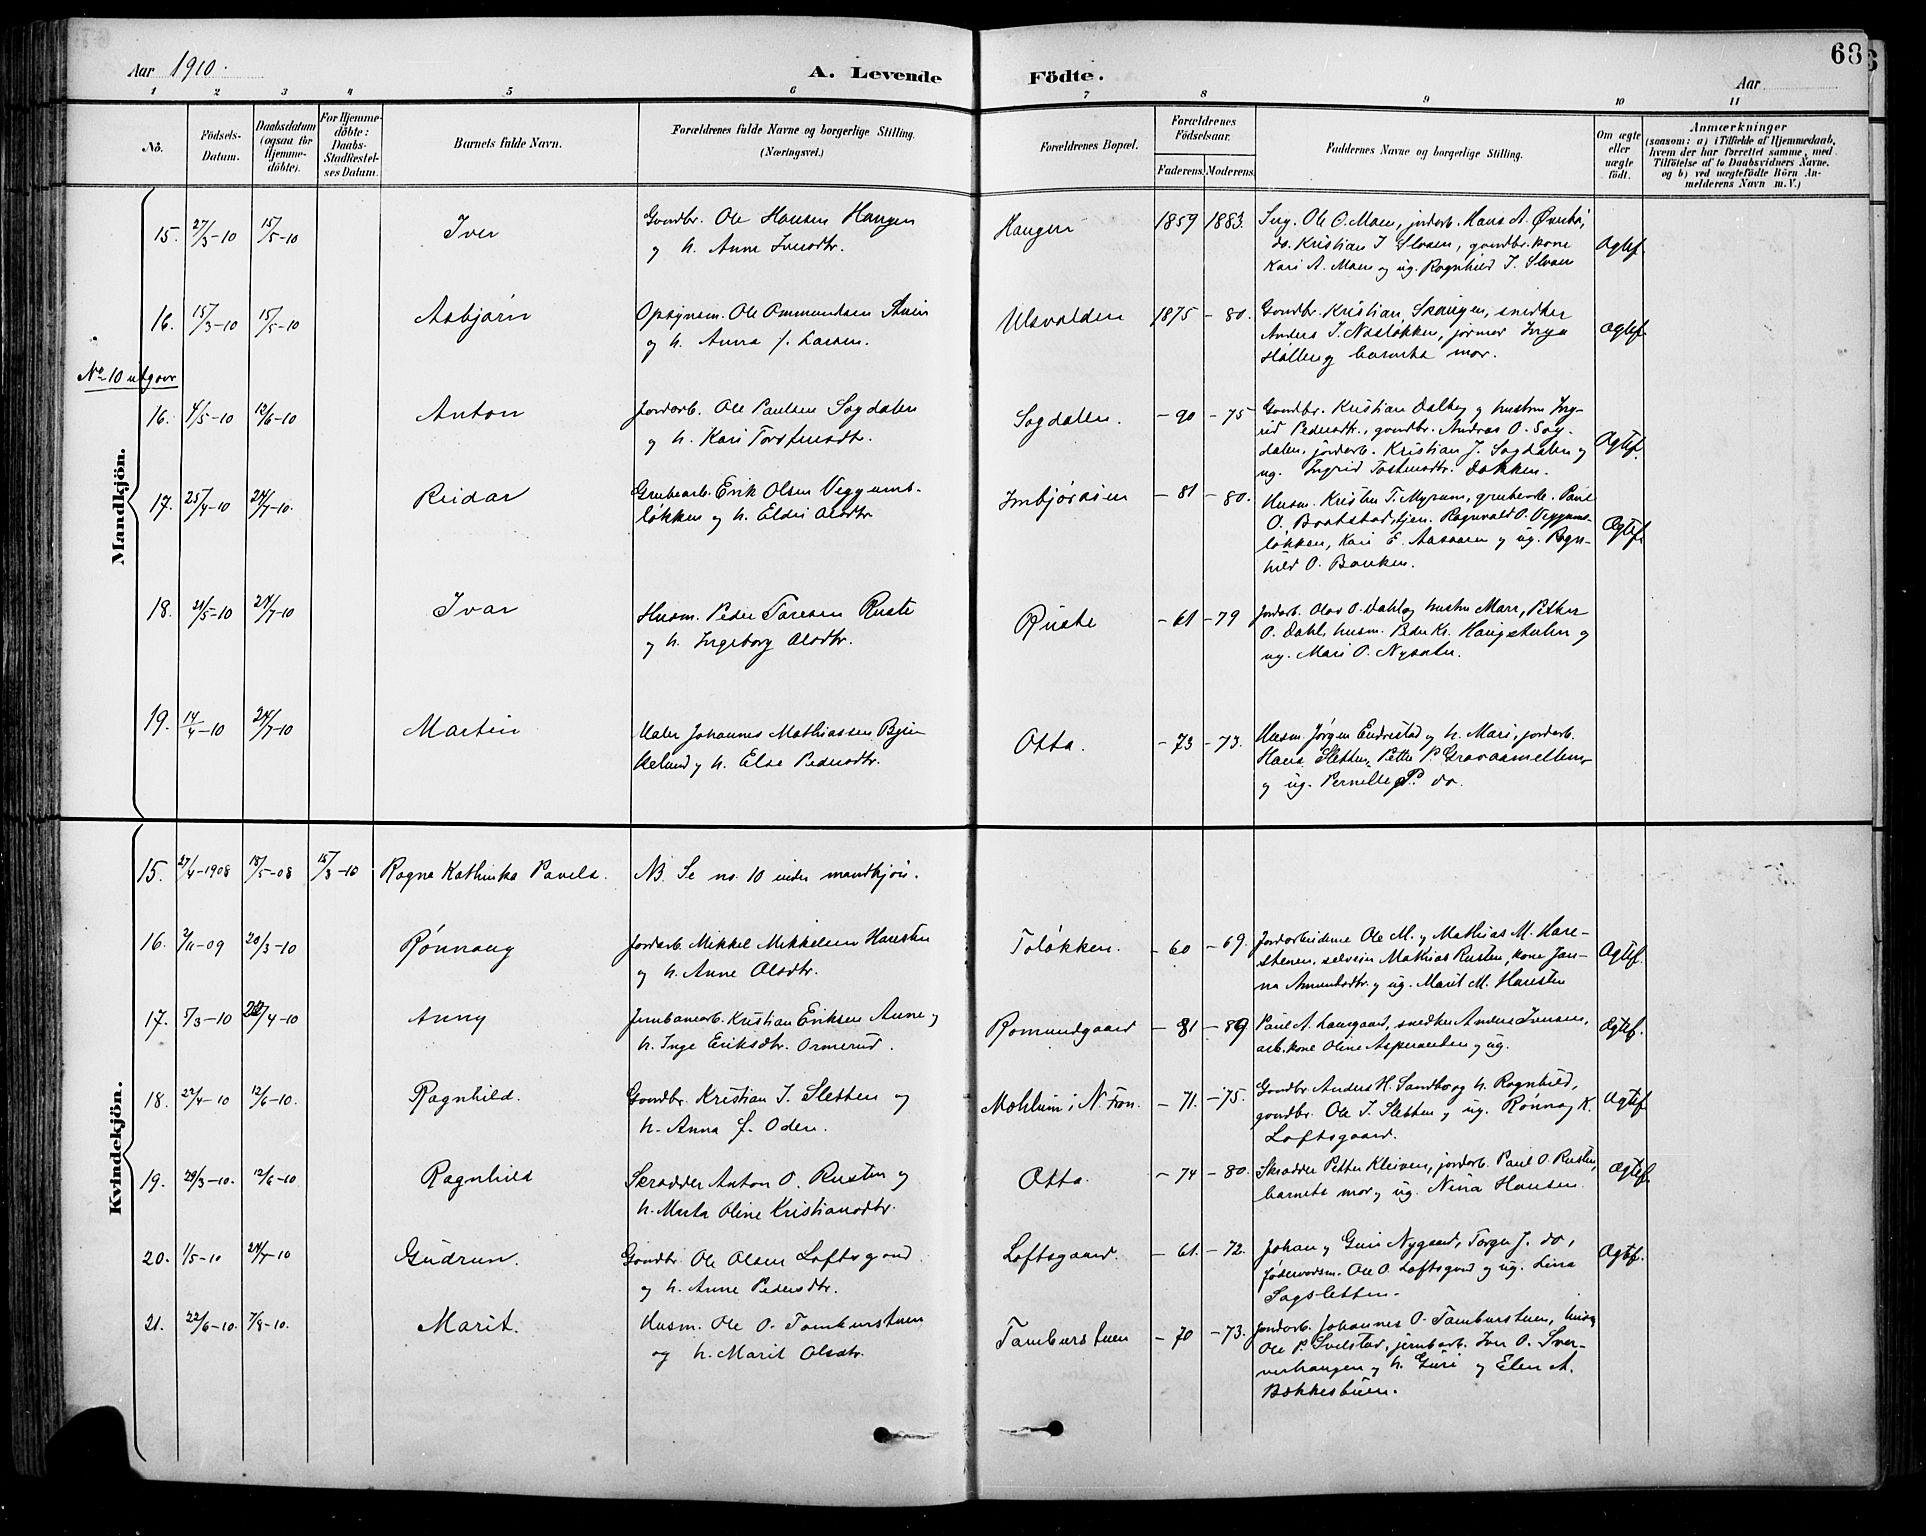 Aar 1910.
A. Levende Födte.
Aar
68
1 2 3 4 5 6 7 8 9 10 11
No.
Födsels-Datum.
Daabsdatum (ogsaa for Hjemmedöbte).
For Hjemmedöbte: Daabs-Stadfæstelses Datum.
Barnets fulde Navn.
Forældrenes fulde Navne og borgerlige Stilling. (Næringsvei.)
Forældrenes Bopæl.
Forældrenes Födselsaar.
Faderens. Moderens.
Faddernes Navne og borgerlige Stilling.
Om ægte eller uægte födt.
Anmærkninger
(saasom: a) i Tilfælde af Hjemmedaab, hvem der har forrettet samme, med Tilföielse af to Daabsvidners Navne, og b) ved uægtefödte Börn Anmelderens Navn m. V.)
Mandkjön.
15. 27/3-10 15/5-10 Iver
Gaardbr. Ole Hansen Haugen
og h. Anne Iversdtr.
Haugen 1859 1883.
Ole O. Moen, jordarb. Hans A.
do. Kristian I Sloaen, gaardbr. kone
Kari A. Moen og ug. Ragnhild I. Sloaen
Ægtef.
16. 15/3-10 15/5-10 Asbjørn
Opsynsm. Ole Ommundsen
og h. Anna f. Larsen.
Ulvolden 1875 - 80.
Gaardbr. Kristian Skaugen, snedker
Anders I. Nosløkken, jormor Inga
og barnets mor.
Ægtef.
No 10 utgaar
16. 4/5-10 12/6-10 Anton
Jordarb. Ole Paulsen Sogdalen
og h. Kari Torstensdtr.
Sogdalen. - 90 - 75
Gaardbr. Kristian Dalby og hustru Ing-
rid Pedersdtr., gaardbr. Andras O. Sog-
dalen, jordarb. Kristian J. Sogdalen og
ug. Ingrid Tostensdtr. Dokken.
Ægtef.
17. 25/4-10 24/7-10. Reidar
Grubearb. Erik Olsen Veggums-
løkken og h. Eldri Olsdtr.
- 81 - 80.
Husm. Kristen T. Myrum, grubearb. Paul
O. Ragnvald O. Veggums-
løkken, Kari E. Aasaaren og ug. Ragn-
hild O. Bakken.
Ægtef.
18. 21/5-10 24/7-10 Ivar
Husm. Peder Taresen Ruste
og h. Ingeborg Olsdtr.
Ruste - 61 - 79
Jordarb. Olav O. Dahl og hustru Mari, Petter
O. Dahl, husm. Peder Kr. Haugstulen og
ug. Mari O. Nysæter.
19. 14/4-10 24/7-10 Martin
Maler Johannes Mathiassen Bjør-
kelund og h. Else Pedersdtr.
Otta. - 73 - 73.
Husm. Jørgen Endrestad og h. Mari, jordarb.
Hans Sletten, Petter P. Graaamellem
og ug. Pernille P. do
Kvindekjön.
15. 27/4-1908 18/5-08 15/3-10 Ragna Kathinka Pavels.
NB. Se no. 10 under mandkjøn.
16. 2/11-09 20/3-10 Rønnaug
Jordarb. Mikkel Mikkelsen Haresten
og h. Anne Olsdtr.
Toløkken. - 60 - 69.
Jordarbeiderne Ole M. og Mathias M. Hare-
stenen, selveier Mathias Rusten, kone Jan-
na Amundsdtr. og ug. Marit M. Haresten
Ægtef.
17. 5/3-10 /4-10 Anny
Jernbanearb. Kristian Eriksen Aune og
h. Inga Eriksdtr. Ormerud.
Romundgaard - 81 - 89
Paul A. Laurgaard, snedker Anders Iversen,
arb. kone Oline og ug.
Ægtef.
18. 22/4-10 12/6-10. Ragnhild.
Gaardbr. Kristian I. Sletten og
h. Anna f. Oden.
Mæhlum i N. Fron. - 71. - 75.
Gaardbr. Anders H. Sandbo og h. Ragnhild,
gaardbr. Ole I. Sletten og ug. Rønnog K.
Loftsgaard.
Ægtef
19. 29/3-10. 12/6-10 Ragnhild
Skrædder Anton O. Rusten og
h. Marta Oline Kristiansdtr.
Otta. - 74 - 80.
Skrædder Petter Kleiven, jordarb. Paul O. Rusten,
barnets mor og ug. Nina Hansen.
Ægtef.
20. 1/5-10 24/7-10 Gudrun.
Gaardbr. Ole Olsen Loftsgaard
og h. Anne Pedersdtr.
Loftsgaard. - 61. - 72.
Johan og Guri Nygaard, Torger J. do,
Ole O. Loftsgaard og ug. Lina
Sagsletten.
Ægtef.
21. 22/6-10. 7/8-10. Marit.
Husm. Ole O. Tamburstuen
og h. Marit Olsdtr.
Tamburstuen - 70 - 73.
Jordarb. Johannes O. Tamburstuen, husm.
Ole P. Svelstad, jernbarb. Iver O.
og h. Guri og Elen A.
Bækkestuen.